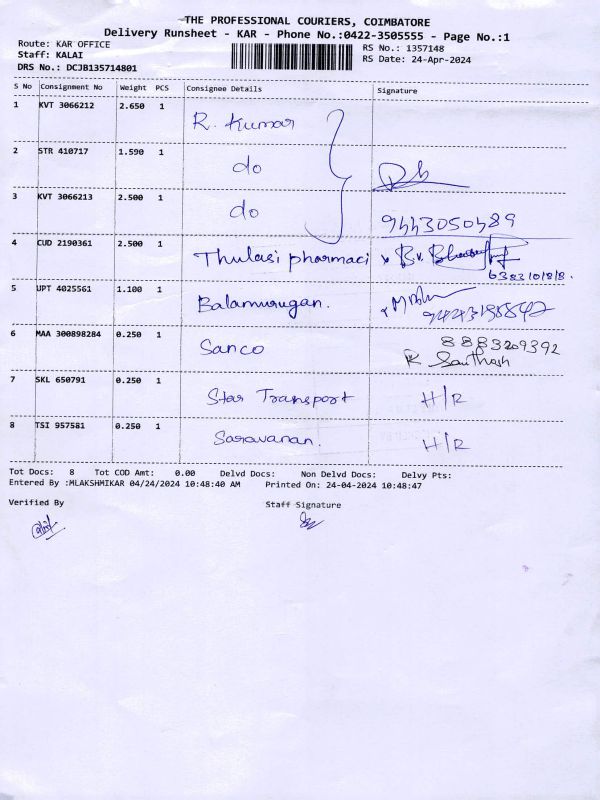 THE PROFESSIONAL COURIERS, COIMBATORE
Delivery Runsheet - KAR - Phone No.:0422-3505555 - Page No.:1
Route: KAR OFFICE
RS No.: 1357148
Staff: KALAI
RS Date: 24-Apr-2024
DRS No.: DCJB135714801
S No Consignment No Weight PCS Consignee Details Signature
1 KVT 3066212 2.650 1 R. Kumar
2 STR 410717 1.590 1 do
3 KVT 3066213 2.500 1 do 9443050489
4 CUD 2190361 2.500 1 Thulasi pharmaci
5 UPT 4025561 1.100 1 Balamurugan.
6 MAA 300898284 0.250 1 Sanco 8883209392
Santhosh
7 SKL 650791 0.250 1 Star Transport H/R
8 TSI 957581 0.250 1 Saravanan. H/R
Tot Docs: 8 Tot COD Amt: 0.00 Delvd Docs: Non Delvd Docs: Delvy Pts:
Entered By :MLAKSHMIKAR 04/24/2024 10:48:40 AM Printed On: 24-04-2024 10:48:47
Verified By Staff Signature